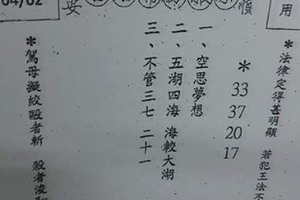 04/02
用
＊法律定得甚明顯 若犯王法不
＊
33
37
20
17
一、空思夢想
二、五湖四海 海較大湖
三、不管三七 二十一
＊駕母擬絞毆者斬